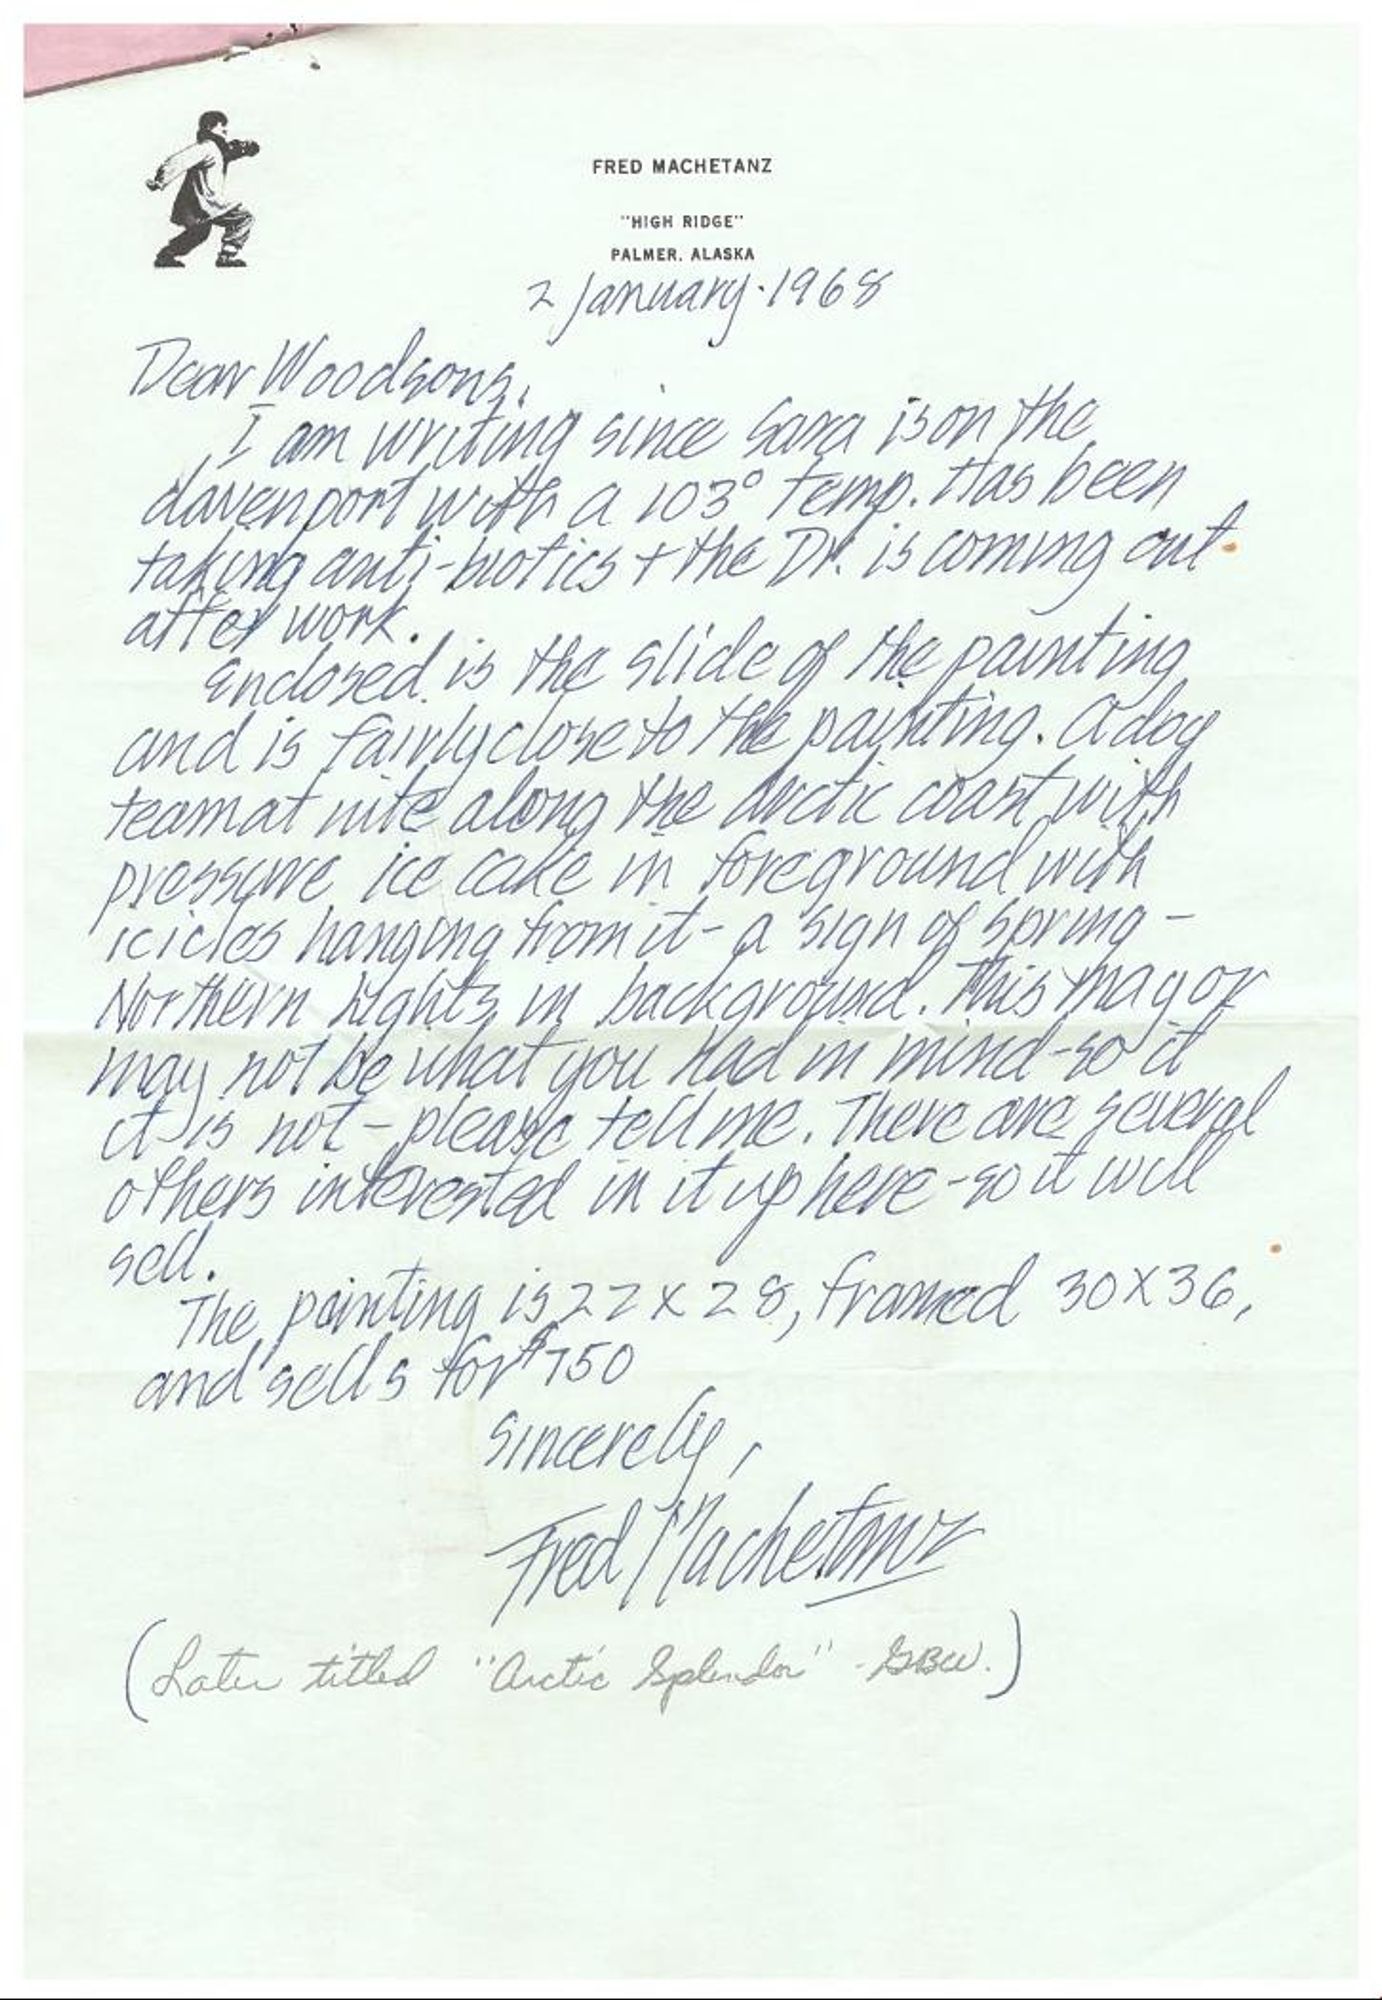 FRED MACHETANZ
"HIGH RIDGE"
PALMER, ALASKA
2 January · 1968
Dear Woodsons,
I am writing since Sara is on the
davenport with a 103° temp. Has been
taking anti-biotics + the Dr. is coming out
after work.
Enclosed is the slide of the painting
and is fairly close to the painting. A dog
team at nite along the Arctic coast with
pressure ice cake in foreground with
icicles hanging from it - a sign of spring -
Northern Lights in background. This may or
may not be what you had in mind - so if
it is not - please tell me. There are several
others interested in it up here - so it will
sell.
The painting is 22 x 28, framed 30 X 36,
and sells for $750
Sincerely,
Fred Machetanz
(Later titled "Arctic Splendor" - GBW.)